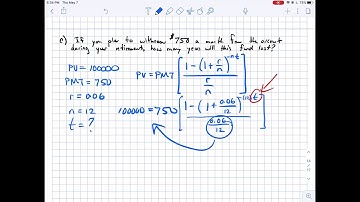 5:36 PM Thu May 7
c) If you plan to withdraw $750 a month from the account
during your retirement, how many years will this fund last?
PV = 100000
PMT = 750
r = 0.06
n = 12
t = ?
PV = PMT [ 1 - (1 + r/n)^-nt / r/n ]
100000 = 750 [ 1 - (1 + 0.06/12)^-12t / 0.06/12 ]